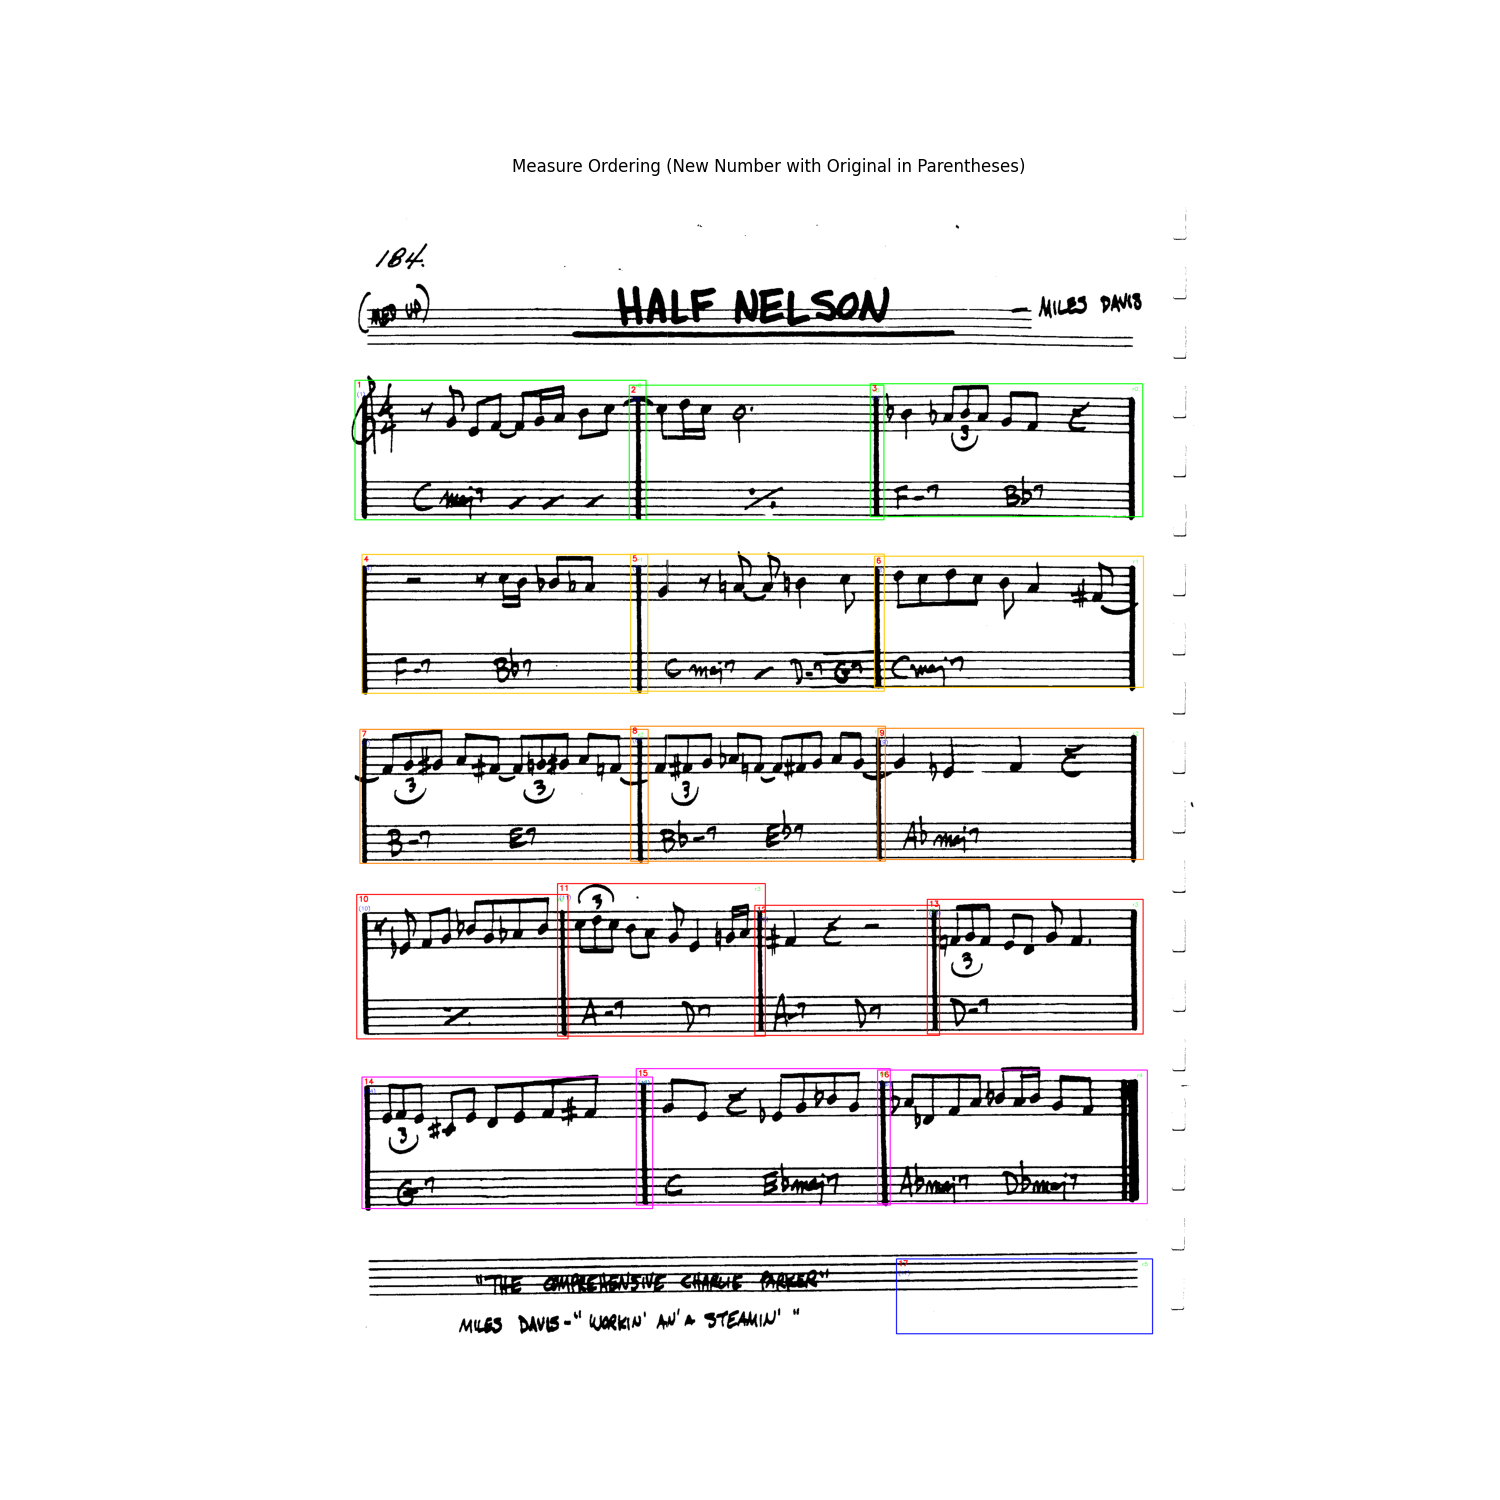 Measure Ordering (New Number with Original in Parentheses)
184.
(MED UP)
HALF NELSON
— MILES DAVIS
1 2 3
4 4
3
C maj7 F-7 Bb7
4 5 6
F-7 Bb7 C maj7 D-7 G7 Cmaj7
7 8 9
3 3 3
B-7 E7 Bb-7 Eb7 Ab maj7
10 (10) 11 (11) 13
3 3
A-7 D7 A-7 D7 D-7
14 15 16
3
G7 C Ebmaj7 Abmaj7 Dbmaj7
17
"THE COMPREHENSIVE CHARLIE PARKER"
MILES DAVIS-"WORKIN' AN'A STEAMIN'"